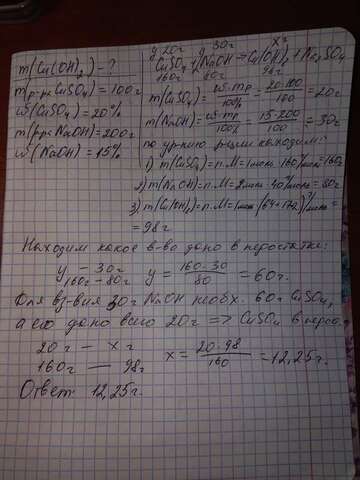 m(Cu(OH)₂) – ?
m(р-ра CuSO₄) = 100г
ω(CuSO₄) = 20%
m(р.ра NaOH) = 200г
ω(NaOH) = 15%
у 20г у 30г x г
CuSO₄ + 2NaOH → Cu(OH)₂ + Na₂SO₄
160г 80г 98г
m(CuSO₄) = ω·mр / 100% = 20·100 / 100 = 20г
m(NaOH) = ω·mр / 100% = 15·200 / 100 = 30г
по ур-нию р-ции находим:
1) m(CuSO₄) = n·M = 1моль·160г/моль = 160г
2) m(NaOH) = n·M = 2моль·40г/моль = 80г
3) m(Cu(OH)₂) = n·M = 1моль(64+17·2)г/моль =
= 98г
Находим какое в-во дано в недостатке:
y – 30г
160г – 80г y = 160·30 / 80 = 60г.
Для вз-вия 30г NaOH необх. 60г CuSO₄,
а его дано всего 20г => CuSO₄ в
20г – x г
160г — 98г x = 20·98 / 160 = 12,25г.
Ответ: 12,25г.